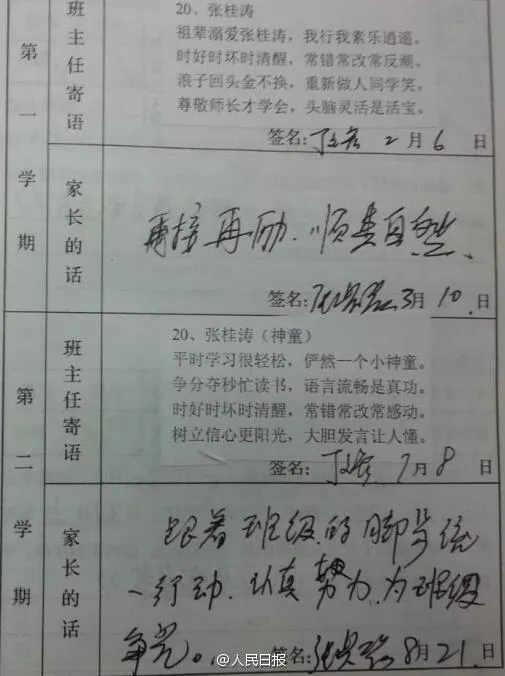 第一学期
班主任寄语
20、张桂涛
祖辈溺爱张桂涛，我行我素乐逍遥。
时好时坏时清醒，常错常改常反潮。
浪子回头金不换，重新做人同学笑。
尊敬师长才学会，头脑灵活是活宝。
签名: 2月6日
家长的话
再接再励、顺其自然
签名: 3月10日
第二学期
班主任寄语
20、张桂涛（神童）
平时学习很轻松，俨然一个小神童。
争分夺秒忙读书，语言流畅是真功。
时好时坏时清醒，常错常改常感动。
树立信心更阳光，大胆发言让人懂。
签名: 7月8日
家长的话
跟着班级的脚步统
一行动.认真努力.为班级
争光。
签名: 8月21日
@人民日报